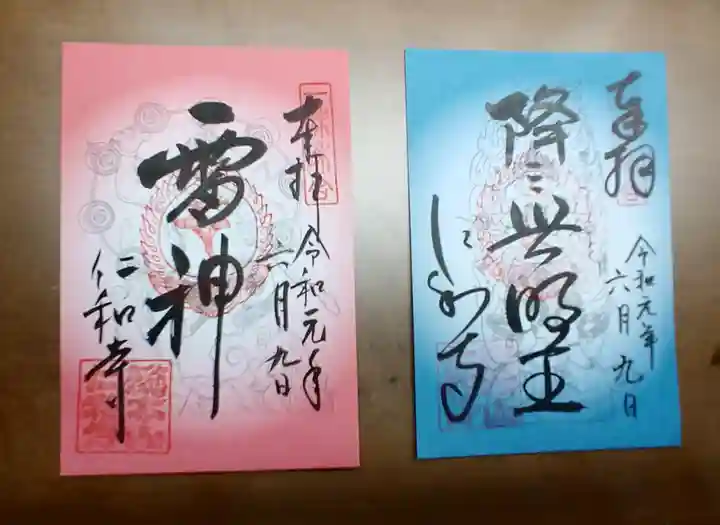 奉拝
令和元年
六月九日
雷神
仁和寺
奉拝
令和元年
六月九日
降三世明王
仁和寺